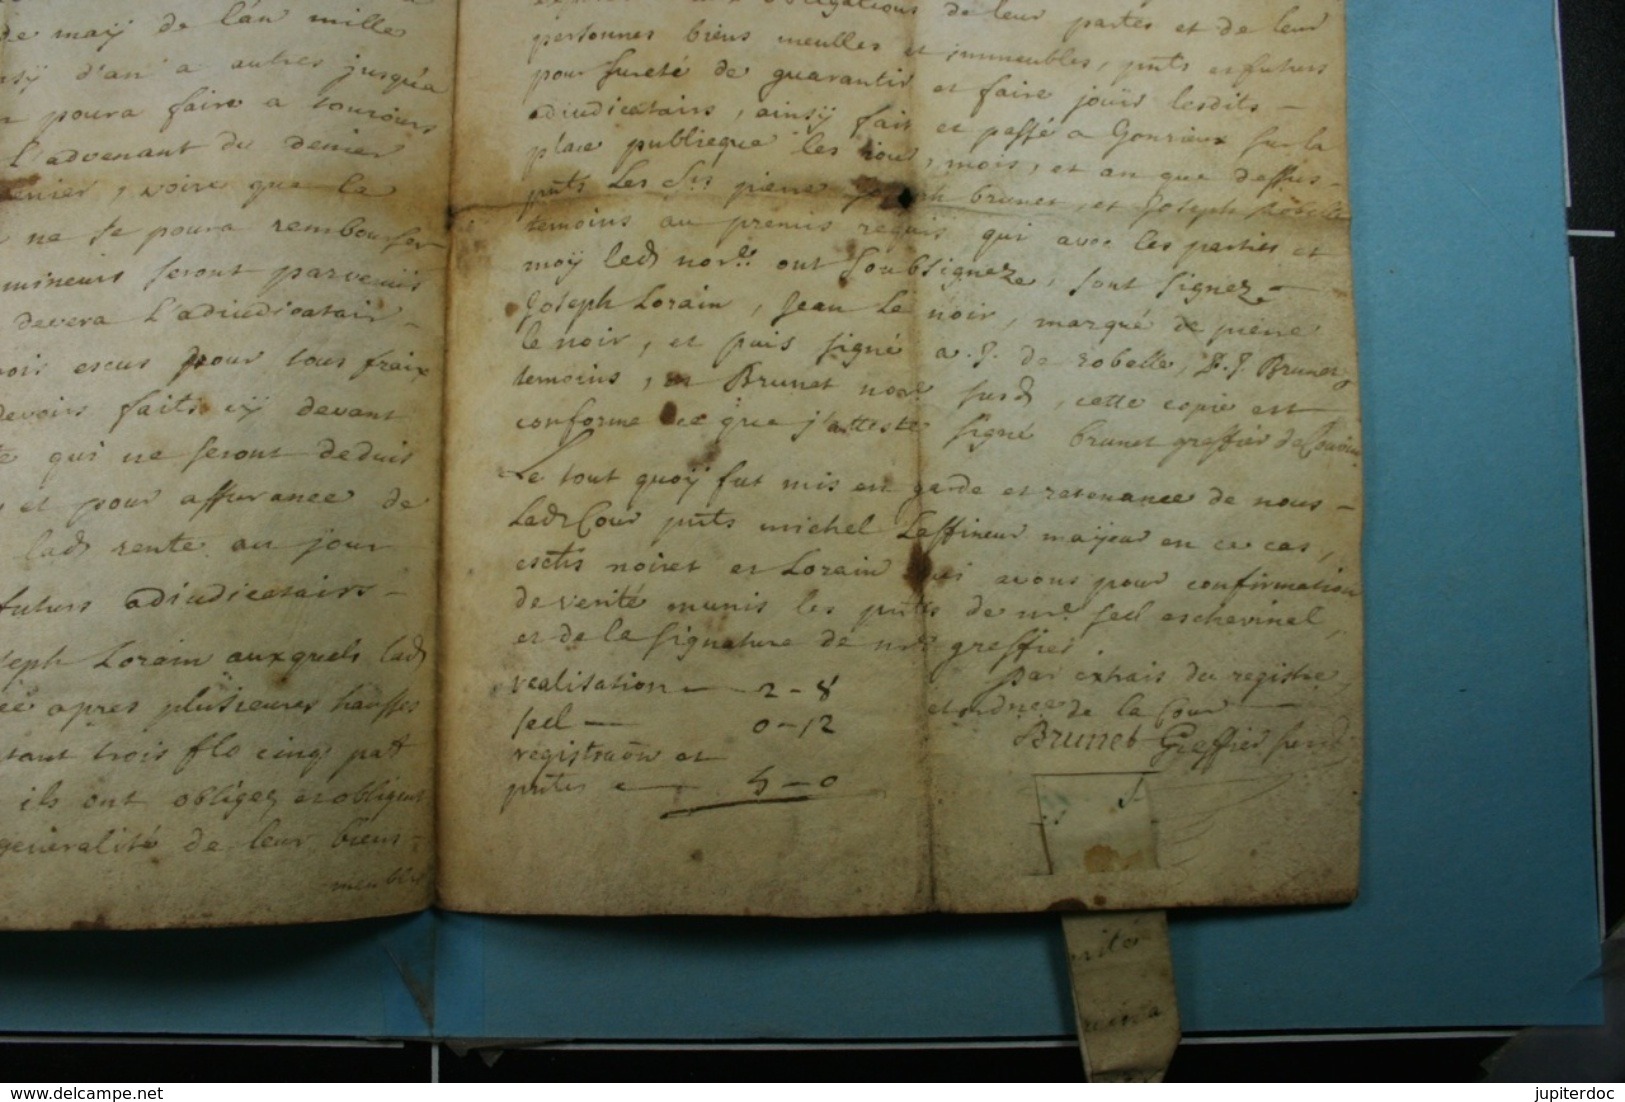 de maÿ de l'an mille
d'an a autres jusqu'a
poura faire a toujours
L'advenant du denier
denier, voire que la
ne se poura rembourser
mineurs seront parvenus
devera L'adiudicatair
escus pour tous fraix
devoirs faits cÿ devant
qui ne seront deduis
et pour assurance de
lad rente au jour
futurs adiudicatairs
Joseph Lorain auxquels lad
apres plusieures hausses
trois flo cinq pat
ils ont obligez et obligent
generalité de leur biens
meubles
obligations de leur partes et de leur
personnes biens meulles et immeubles, pnts et futurs
pour sureté de guarantir et faire jouïr lesdits
adiudicatairs, ainsÿ fait et passé a Gonrieux sur la
place publieque les jour, mois, et an que dessus
pnts Les Srs pierre Joseph brunet, et Joseph robelle
temoins au premis requis qui avec les partis et
moÿ led nore ont soubsignez, sont signez
Joseph Lorain, Jean Le noir, marqué de pierre
le noir, et puis signé a. J. de robelle, P. J. Brunet
temoins, et Brunet nore surd, cette copie est
conforme ce que j'atteste signé brunet greffier de Couvin
Le tout quoÿ fut mis en garde et retenance de nous
Lad Cour pnts michel Laffineur maÿeur en ce cas,
eschs noiret et Lorain qui avons pour confirmation
de verité munis les pntes de nre seel eschevinel
et de la signature de nre greffier
realisation 2-8
seel 0-12
registraôn et
pntes 5-0
par extrait du registre
et ordnce de la Cour
Brunet Greffier surd